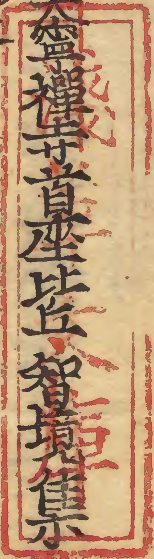 大寧禪寺首座比丘 智境集